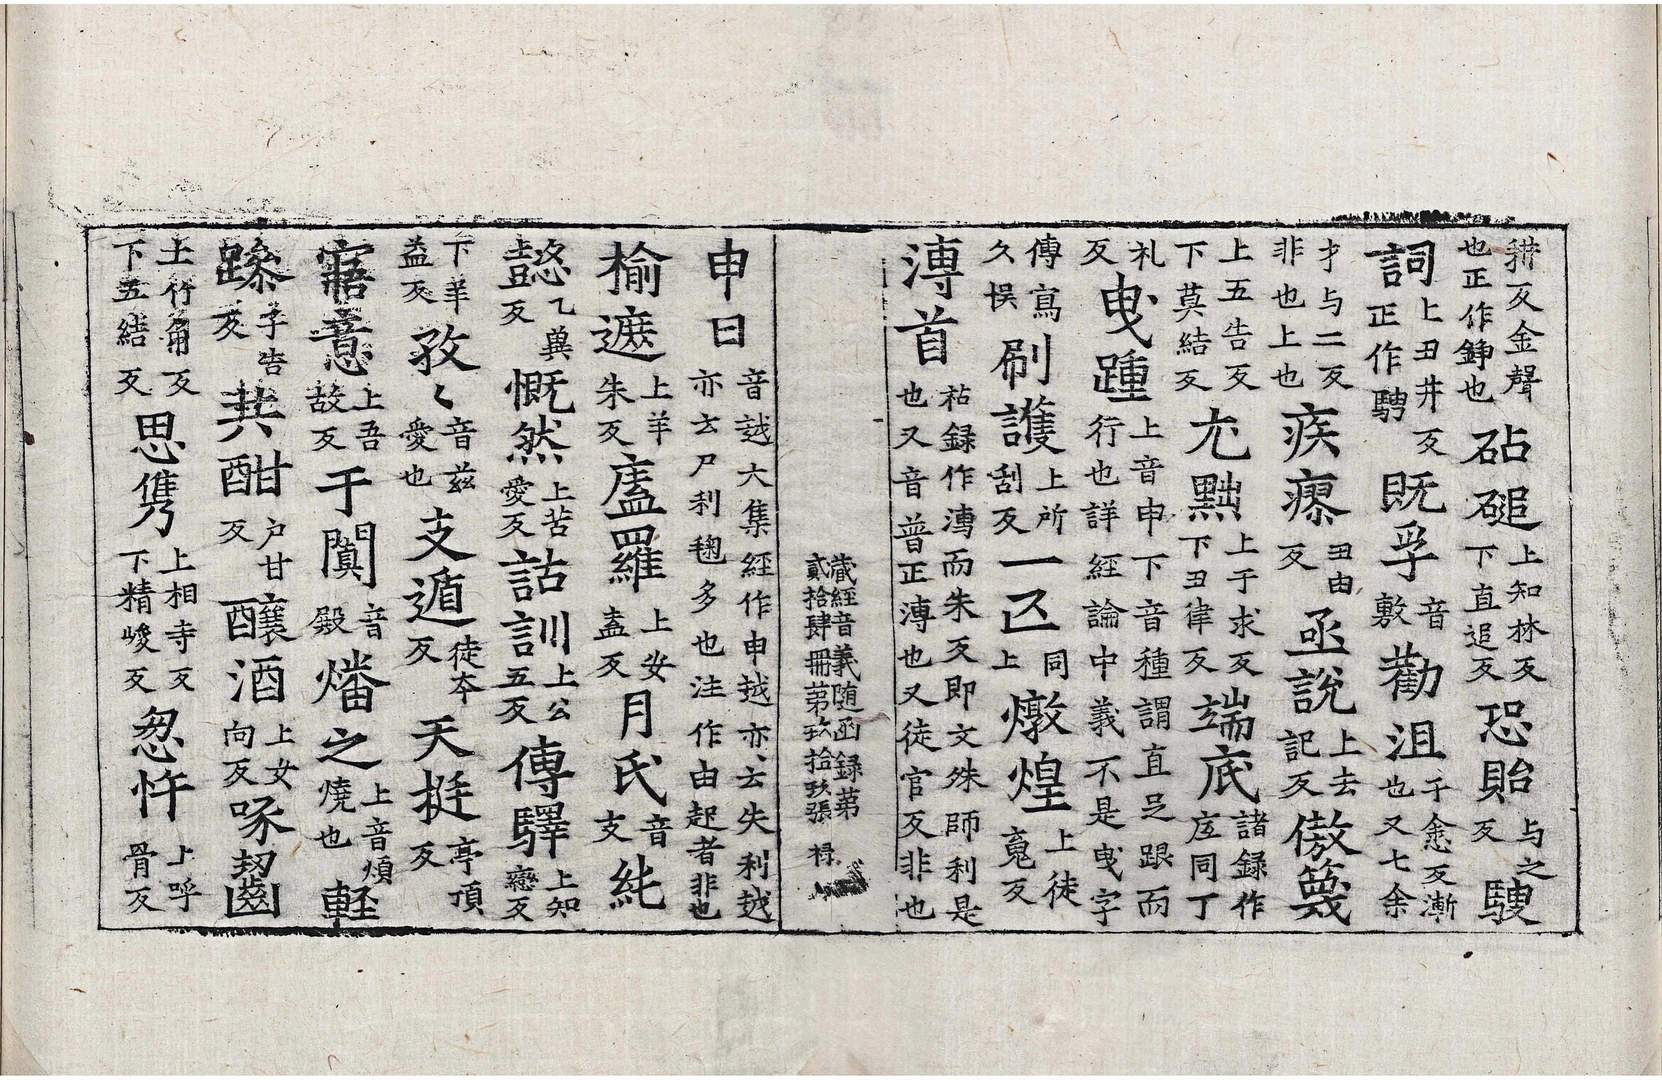 耕反金聲也正作錚也砧磓上知林反下直追反恐貽与之反騪
詞上丑井反正作騁既孚音敷勸沮子悆反漸也又七余
才与二反非也上也疾瘝丑由反亟說上去記反傲篾
上五告反下莫結反尤黜上于求反下丑律反端底諸録作庢同丁
礼反曳踵上音申下音種謂直足跟而行也詳經論中義不是曳字
傳寫久悮刷護上所刮反一匹同上燉煌上徒䰟反
漙首祜録作漙而朱反即文殊師利是也又音普正溥也又徒官反非也
藏經音義随函録第貳拾肆冊苐玖拾玖張 禄
申日音越大集經作申越亦云失利越亦云尸利毱多也注作由起者非也
榆遮上羊朱反廅羅上安盍反月氏音支純
懿乙冀反慨然上苦愛反詁訓上公五反傳驛上知戀反
下羊益反孜〻音兹愛也支遁徒夲反天挺亭頂反
寤意上吾故反于闐音殿燔之上音煩燒也輊
躁子告反共酣户甘反釀酒上女向反啄齧
上竹角反下五結反思儁上相寺反下精峻反忽忤上呼骨反